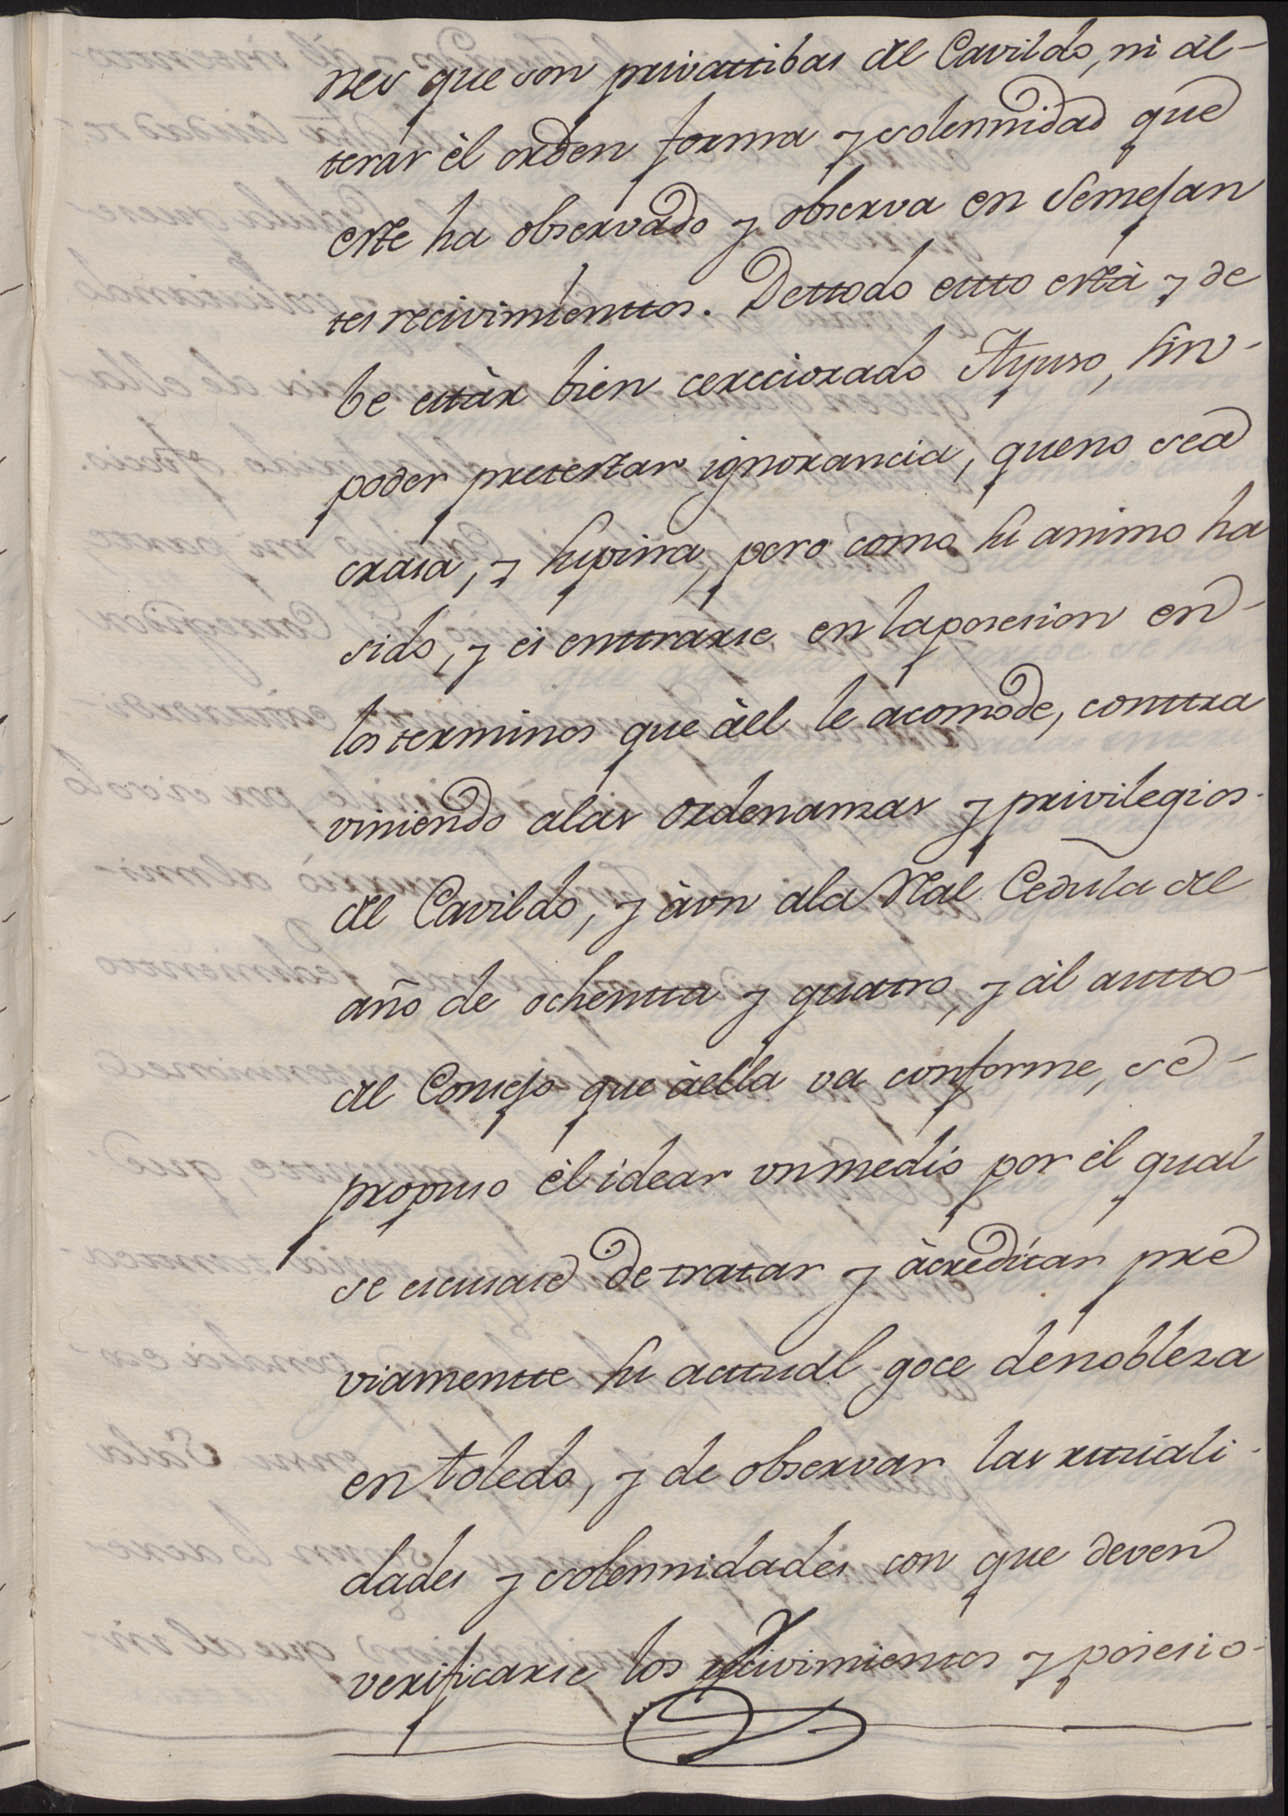 nes que son privattibas del Cavildo, ni al-
terar èl orden forma y solemnidad que
este ha observado y observa en Semejan
tes recivimienttos. Dettodo estto està y de
be estàr bien cercciorado Ayuso, sin-
poder pretestar ignorancia, queno sea
crasa, y supina, pero como su animo ha
sido, y es enttrarse en laposesion en-
los terminos que àel le acomode, conttra
viniendo alas ordenanzas y privilegios
del Cavildo, y àvn ala Rl. Cedula del
año de ochentta y quatro, y àl autto-
del Consejo que àella va conforme, se-
propuso èl idear vnmedio por èl qual
se escusase detratar y àcreditar pre
viamentte su acttual goce denobleza
en toledo, y de observar las rittuali-
dades y solemnidades con que deven
verificarse los recivimientos y posesio-